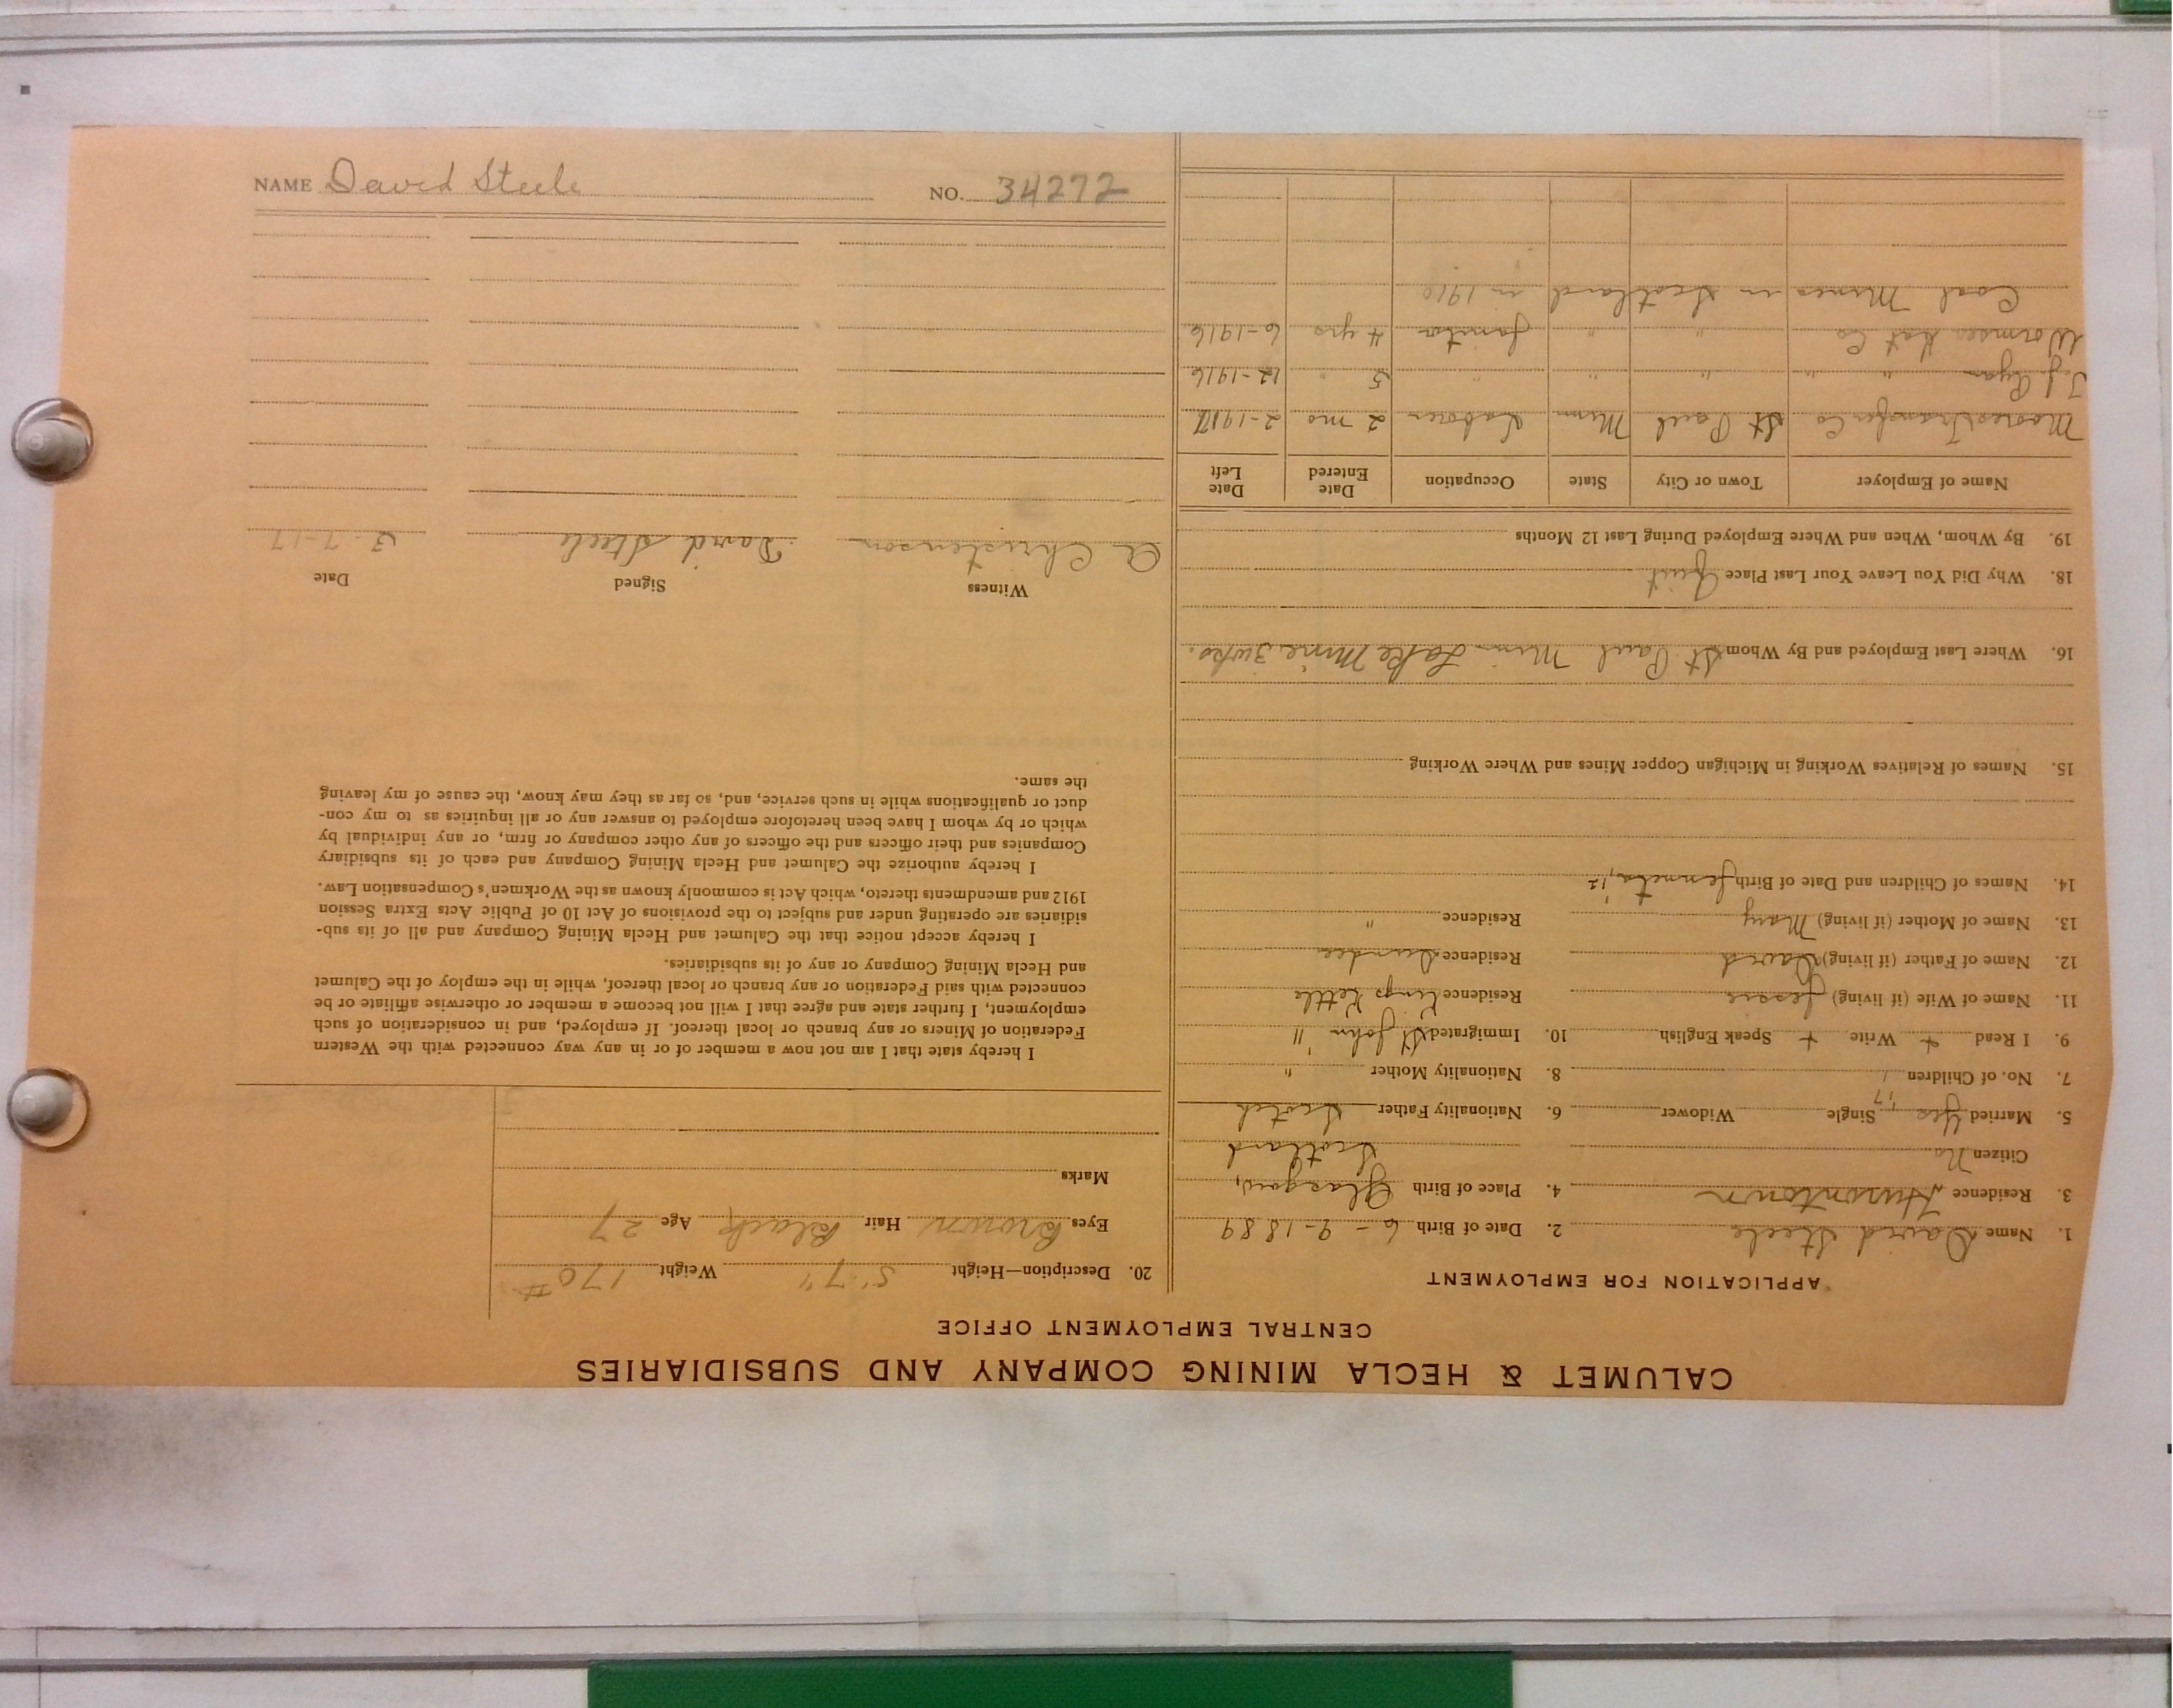 NAME David Steele NO. 34272
CALUMET & HECLA MINING COMPANY AND SUBSIDIARIES
CENTRAL EMPLOYMENT OFFICE
APPLICATION FOR EMPLOYMENT
1. Name David Steele 2. Date of Birth 6-9-1889
3. Residence Hurontown 4. Place of Birth Glasgow,
Citizen No Scotland
5. Married Yes '17 Single Widower 6. Nationality Father Scotch
7. No. of Children 1 8. Nationality Mother "
9. I Read + Write + Speak English 10. Immigrated St John '11
11. Name of Wife (if living) Jessie Residence Kings Kettle
12. Name of Father (if living) David Residence Dundee
13. Name of Mother (if living) Mary Residence "
14. Names of Children and Date of Birth
15. Names of Relatives Working in Michigan Copper Mines and Where Working
16. Where Last Employed and By Whom St Paul Minn Lake Mine 3 wks.
18. Why Did You Leave Your Last Place Quit
19. By Whom, When and Where Employed During Last 12 Months
Name of Employer Town or City State Occupation Date Entered Date Left
Moores Transfer Co St Paul Minn Laborer 2 mo 2-1917
T.J. Ryan " " " " " 5 " 12-1916
Hat Co " " Janitor 4 yrs 6-1916
Coal Mines in Scotland in 1910
20. Description—Height 5'7" Weight 170#
Eyes Brown Hair Black Age 27
Marks
I hereby state that I am not now a member of or in any way connected with the Western
Federation of Miners or any branch or local thereof. If employed, and in consideration of such
employment, I further state and agree that I will not become a member or otherwise affiliate or be
connected with said Federation or any branch or local thereof, while in the employ of the Calumet
and Hecla Mining Company or any of its subsidiaries.
I hereby accept notice that the Calumet and Hecla Mining Company and all of its sub-
sidiaries are operating under and subject to the provisions of Act 10 of Public Acts Extra Session
1912 and amendments thereto, which Act is commonly known as the Workmen's Compensation Law.
I hereby authorize the Calumet and Hecla Mining Company and each of its subsidiary
Companies and their officers and the officers of any other company or firm, or any individual by
which or by whom I have been heretofore employed to answer any or all inquiries as to my con-
duct or qualifications while in such service, and, so far as they may know, the cause of my leaving
the same.
Witness Signed Date
A Christenson David Steele 3-7-17